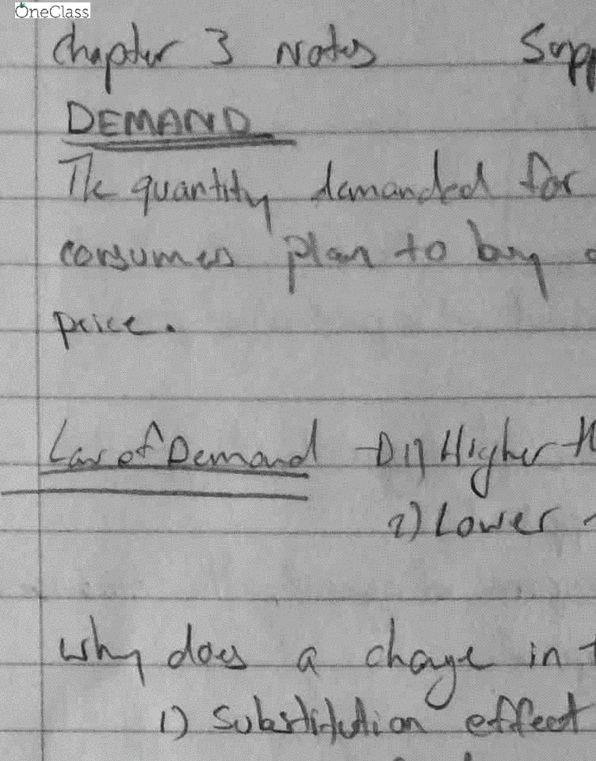 OneClass
Chapter 3 Notes Supp
DEMAND
The quantity demanded for
consumers plan to buy
price.
Law of Demand 1) Higher
2) Lower
Why does a change in
1) Substitution effect